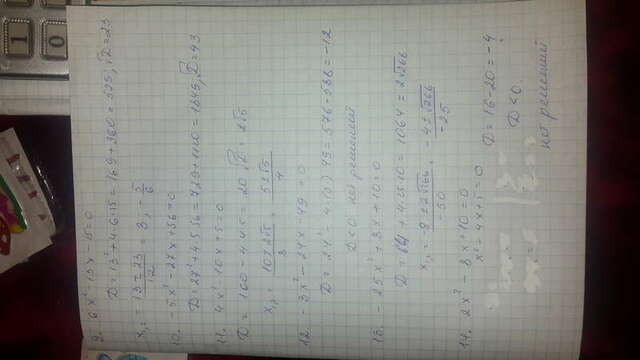 9. 6x²-13x-15=0
D=13²+4·6·15=169+360=529, √D=23
x₁,₂=(13±23)/12=3; -5/6
10. -5x²-27x+56=0
D=27²+4·5·56=729+1120=1849, √D=43
11. 4x²-10x+5=0
D=100-4·4·5=20, √D=2√5
x₁,₂=(10±2√5)/8=(5±√5)/4
12. -3x²-24x-49=0
D=24²-4·(-3)·49=576-588=-12
D<0 нет решений
13. -25x²+8x+10=0
D=64+4·25·10=1064=2√266
14. 2x²-8x+10=0
x²-4x+5=0
D=16-20=-4
D<0
нет решений
1
0